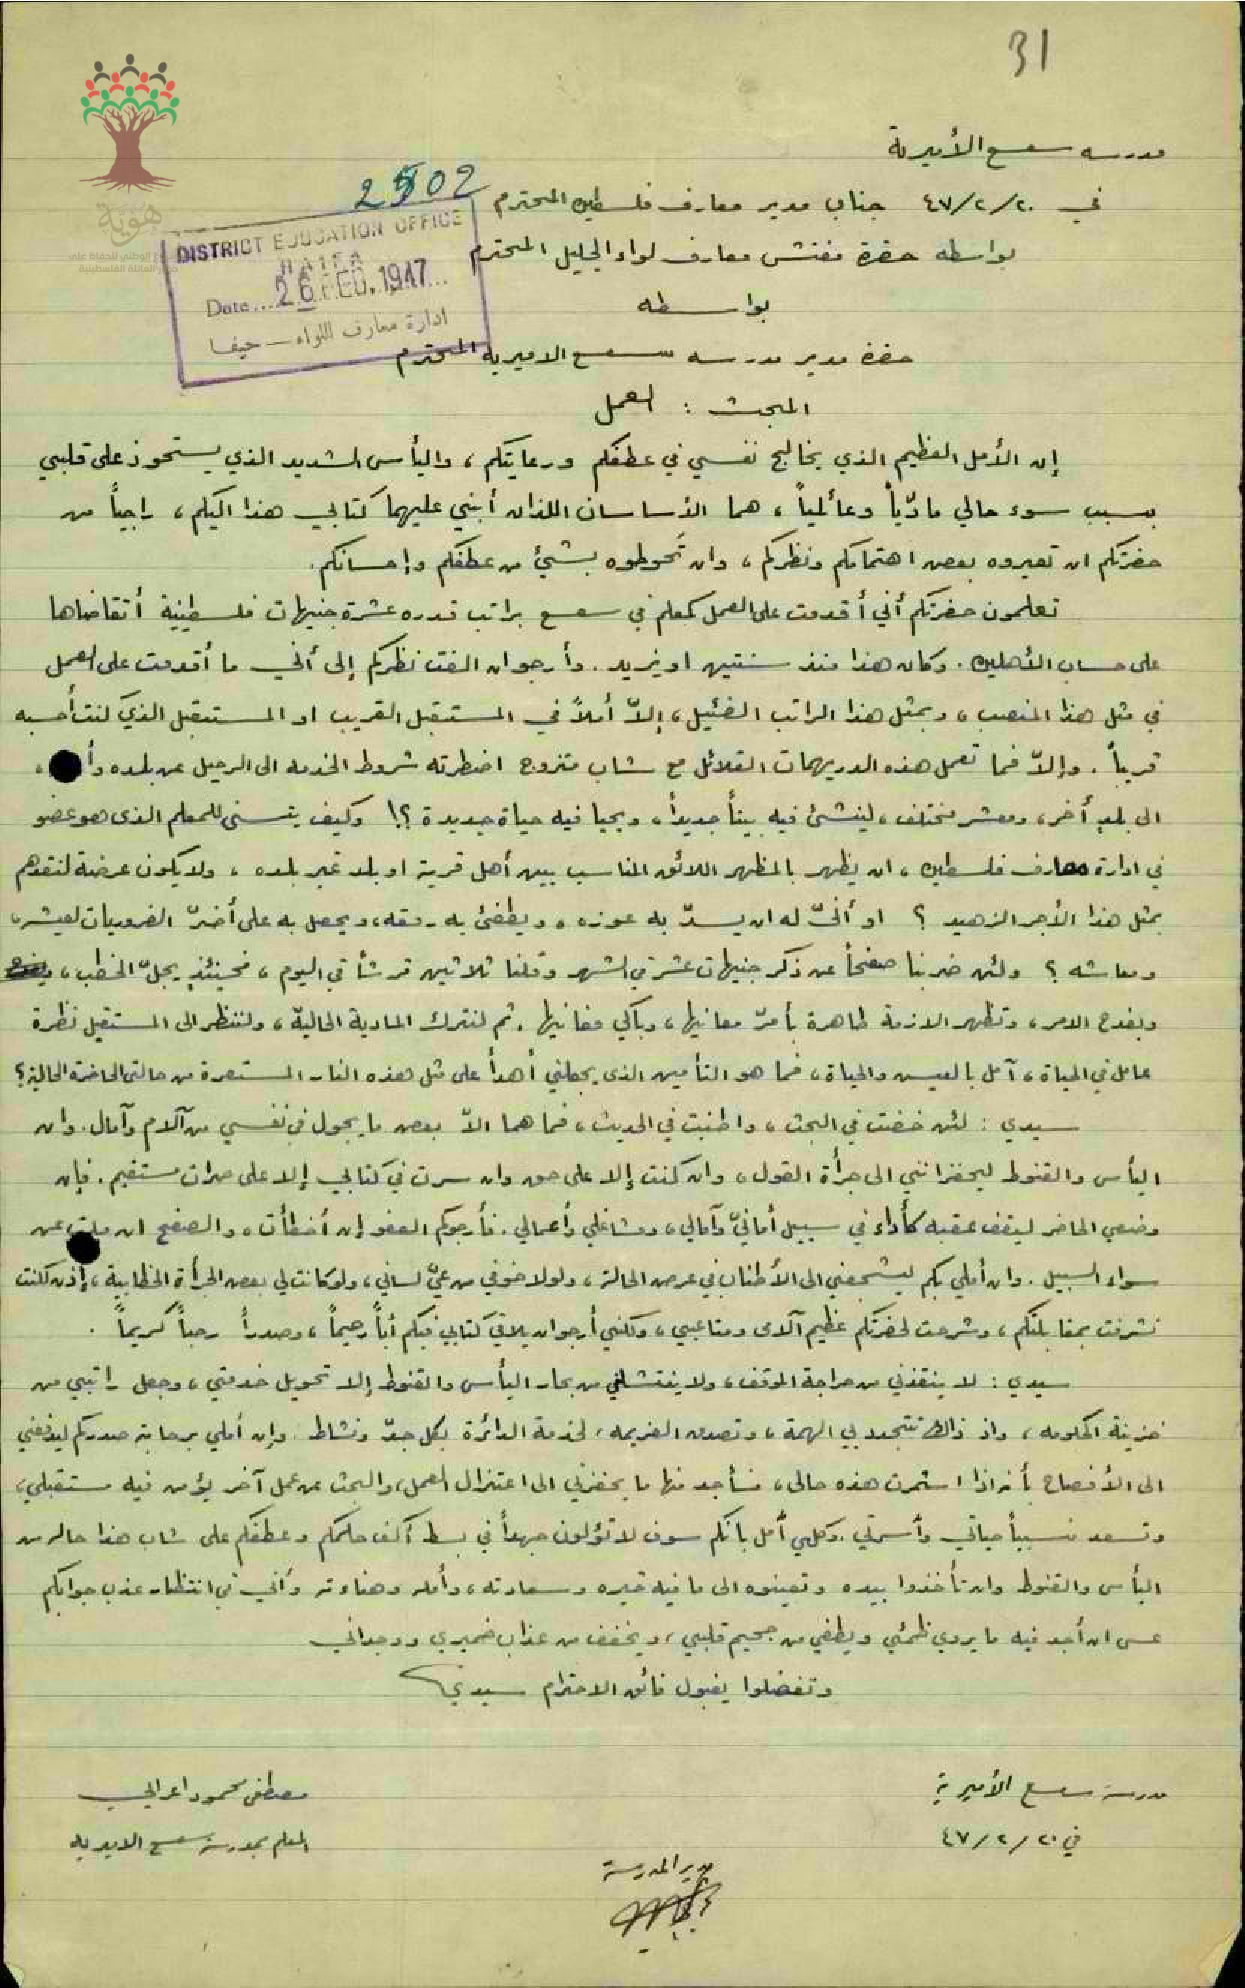 31
مدرسة سعسع الأميرية
2502
في ٢٠/٢/٤٧ جناب مدير معارف فلسطين المحترم
DISTRICT EDUCATION OFFICE
HAIFA
Date... 26 FEB. 1947...
ادارة معارف اللواء — حيفا
هوية
بواسطة حضرة مفتش معارف لواء الجليل المحترم
بواسطة
حضرة مدير مدرسة سعسع الاميرية المحترم
المبحث : العمل
إن الأمل العظيم الذي يخالج نفسي في عطفكم ورعايتكم، واليأس الشديد الذي يستحوذ على قلبي
بسبب سوء حالي مادّياً وعائلياً، هما الأساسان اللذان أبني عليهما كتابي هذا اليكم، راجياً من
حضرتكم ان تعيروه بعض اهتمامكم ونظركم، وان تَحوطوه بشيء من عطفكم وإحسانكم.
تعلمون حضرتكم أني أقدمت على العمل كمعلم في سعسع براتب قدره عشرة جنيهات فلسطينية أتقاضاها
على حساب الأهلين. وكان هذا منذ سنتين او يزيد. وأرجو ان الفت نظركم إلى أني ما أقدمت على العمل
في مثل هذا المنصب، وبمثل هذا الراتب الضئيل، إلاّ أملاً في المستقبل القريب او المستقبل الذي كنت أحسبه
قريباً. وإلاّ فما تعمل هذه الدريهمات القلائل مع شاب متزوج اضطرته شروط الخدمة الى الرحيل عن بلده
الى بلدٍ أخر، ومعشر مختلف، لينشئ فيه بيتاً جديداً، ويحيا فيه حياة جديدة ؟! وكيف يتسنى للمعلم الذي هو عضو
في ادارة معارف فلسطين، ان يظهر بالمظهر اللائق المناسب بين أهل قرية او بلد غير بلده، ولا يكون عرضة لنقدهم
بمثل هذا الأجر الزهيد ؟ او أنّى له ان يسدّ به عوزه، ويطفئ به رمقه، ويحصل به على أخصّ الضروريات لعيشه
ومعاشه ؟ ولئن ضربنا صفحاً عن ذكر جنيهات عشر في الشهر وقلنا ثلاثين قرشاً في اليوم، فحينئذٍ يجلّ الخطب،
ويفدح الامر، وتظهر الازمة ظاهرة بأمرّ معانيها، وباكي مغانيها. ثم لنترك المادية الحاليّة، ولننظر الى المستقبل نظرة
عامل في الحياة، آمل بالعيس والحياة، فما هو التأمين الذي يجعلني أهدأ على مثل هذه النار المستعرة من حالتي الحاضرة الحالية؟
سيدي : لئن خضت في البحث، واطنبت في الحديث، فما هما الاّ بعض ما يجول في نفسي من آلام وآمال. وان
اليأس والقنوط ليحفزانني الى جرأة القول، وان كنت إلا على حق وان سرت في كتابي إلا على صراط مستقيم. فإن
وضعي الحاضر ليقف عقبة كأداء في سبيل أمانيّ وآمالي، ومشاغلي وأعمالي. فأرجوكم العفو إن أخطأت، والصفح ان ملت عن
سواء السبيل. وان أملي بكم ليشجعني الى الأطناب في عرض الحالة، ولولا خوفي من عيّ لساني، ولو كانت لي بعض الجرأة الخطابية، إذن لكنت
تشرفت بمقابلتكم، وشرحت لحضرتكم عظيم آلامي ومتاعبي، ولكني أرجو ان يلاقي كتابي فيكم أباً رحيماً، وصدراً رحباً كريماً.
سيدي : لا ينقذني من حراجة الموقف، ولا ينتشلني من بحار اليأس والقنوط إلا تحويل خدمتي، وجعل راتبي من
خزينة الحكومة، واذ ذاك تتجدد بي الهمة، وتصدق العزيمة، لخدمة الدائرة بكل جدّ ونشاط. وإن أملي برحابة صدركم ليدفعني
الى الأفصاح بأنه اذا استمرت هذه حالي، فسأجد منها ما يحفزني الى اعتزال العمل، والبحث عن عمل آخر يؤمن فيه مستقبلي،
وتسعد نسبياً حياتي وأسرتي. وكلي أمل بانكم سوف لا تؤلون جهداً في بسط أكف حلمكم وعطفكم على شاب هذا حاله من
اليأس والقنوط وان تأخذوا بيده وتعينوه الى ما فيه خيره وسعادته، وأمله وهناءته وأني في انتظار عذب جوابكم
عسى ان أجد فيه ما يروي ظمئي ويطفي من جحيم قلبي، ويخفف من عذاب ضميري ووجداني
وتفضلوا بقبول فائق الاحترام سيدي
مدرسة سعسع الأميرية
مصطفى محمود اعرابي
في ٢٠/٢/٤٧
المعلم بمدرسة سعسع الاميرية
مدير المدرسة